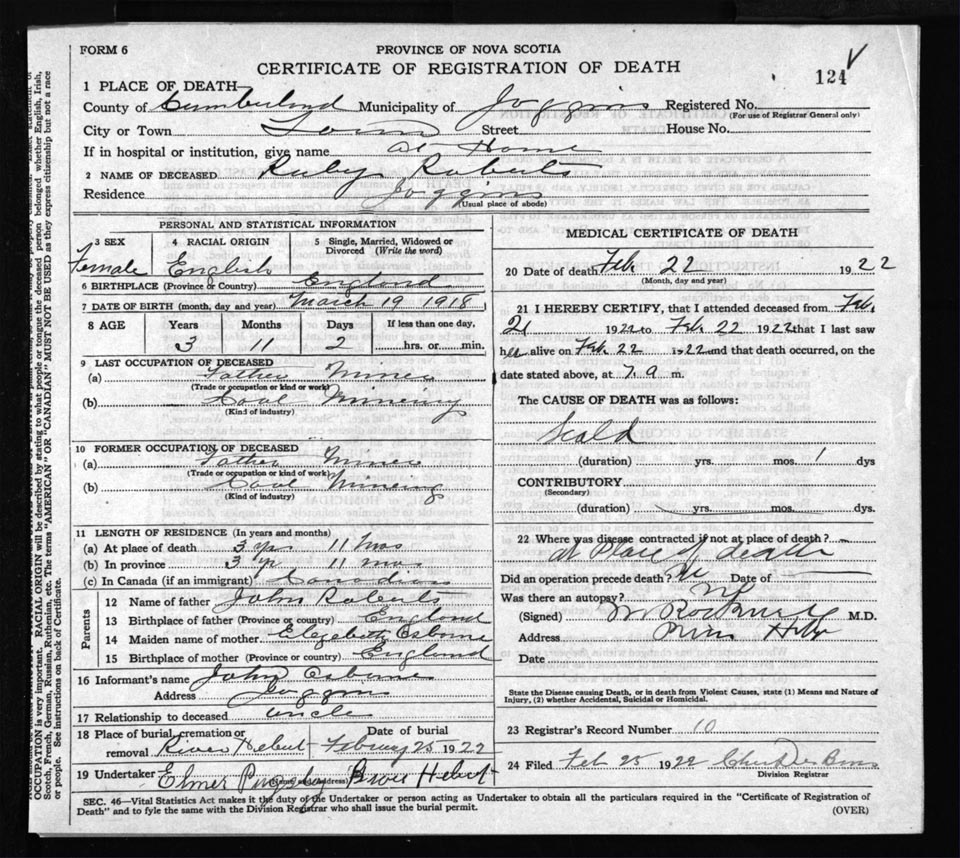 FORM 6
PROVINCE OF NOVA SCOTIA
CERTIFICATE OF REGISTRATION OF DEATH
124
1 PLACE OF DEATH
County of Cumberland Municipality of Joggins Registered No.
(For use of Registrar General only)
City or Town Town Street House No.
If in hospital or institution, give name At Home
2 NAME OF DECEASED Ruby Roberts
Residence Joggins
(Usual place of abode)
PERSONAL AND STATISTICAL INFORMATION
3 SEX 4 RACIAL ORIGIN 5 Single, Married, Widowed or Divorced (Write the word)
Female English
6 BIRTHPLACE (Province or Country) England
7 DATE OF BIRTH (month, day and year) March 19 1918
8 AGE Years Months Days If less than one day,
3 11 2 hrs. or min.
9 LAST OCCUPATION OF DECEASED
(a) Father Miner
(Trade or occupation or kind or work)
(b) Coal Mineing
(Kind of industry)
10 FORMER OCCUPATION OF DECEASED
(a) Father Miner
(Trade or occupation or kind of work)
(b) Coal Mineing
(Kind of industry)
11 LENGTH OF RESIDENCE (In years and months)
(a) At place of death 3 yr 11 mos
(b) In province 3 yr 11 mos
(c) In Canada (if an immigrant) Canadian
Parents
12 Name of father John Roberts
13 Birthplace of father (Province or country) England
14 Maiden name of mother Elezabeth Osborne
15 Birthplace of mother (Province or country) England
16 Informant's name John Osborne
Address Joggins
17 Relationship to deceased uncle
18 Place of burial, cremation or removal River Hebert Date of burial February 25 1922
19 Undertaker Elmer Pugsley River Hebert
MEDICAL CERTIFICATE OF DEATH
20 Date of death Feb 22 1922
(Month, day and year)
21 I HEREBY CERTIFY, that I attended deceased from Feb.
21 1922 to Feb 22 1922 that I last saw
her alive on Feb 22 1922 and that death occurred, on the
date stated above, at 7. a m.
The CAUSE OF DEATH was as follows:
Scald
(duration) yrs. mos. 1 dys
CONTRIBUTORY
(Secondary)
(duration) yrs. mos. dys.
22 Where was disease contracted if not at place of death?
at Place of death
Did an operation precede death? No Date of
Was there an autopsy? No
(Signed) M.D.
Address
Date
State the Disease causing Death, or in death from Violent Causes, state (1) Means and Nature of Injury, (2) whether Accidental, Suicidal or Homicidal.
23 Registrar's Record Number 10
24 Filed Feb 25 1922
Division Registrar
SEC. 46—Vital Statistics Act makes it the duty of the Undertaker or person acting as Undertaker to obtain all the particulars required in the "Certificate of Registration of
Death" and to fyle the same with the Division Registrar who shall issue the burial permit. (OVER)
OCCUPATION is very important. RACIAL ORIGIN will be described by stating to what people or tongue the deceased person belonged whether English, Irish,
Scotch, French, German, Russian, Ruthenian, etc. The terms "AMERICAN" OR "CANADIAN" MUST NOT BE USED as they express citizenship but not a race
or people. See instructions on back of Certificate.